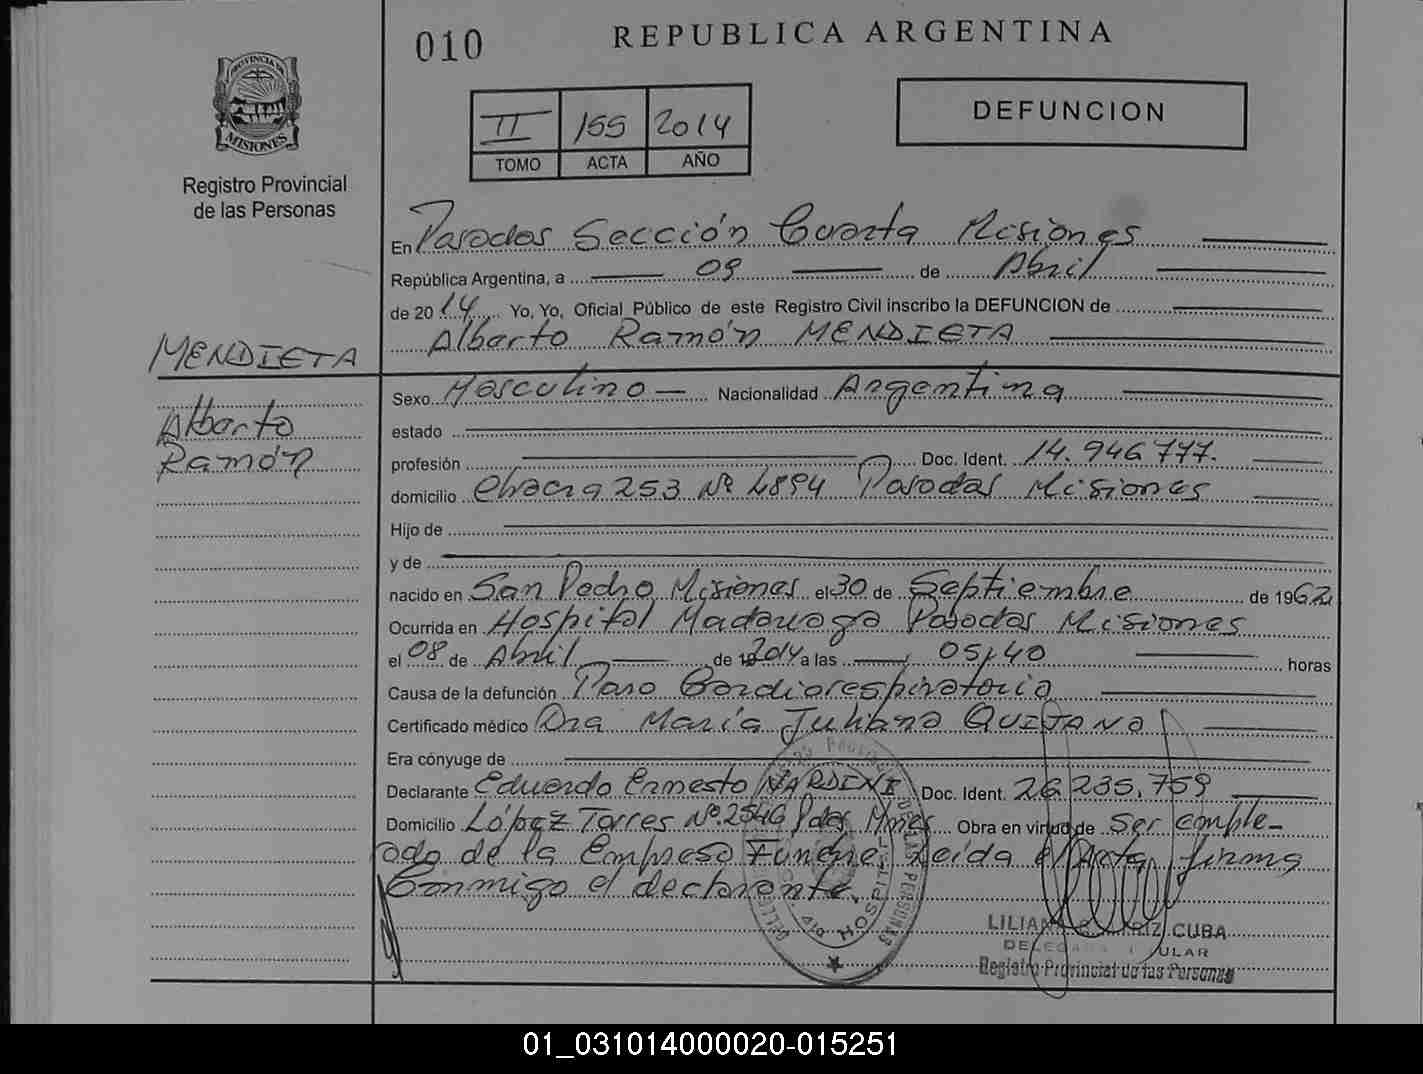 010
REPUBLICA ARGENTINA
PROVINCIA DE
MISIONES
Registro Provincial
de las Personas
II 155 2014
TOMO ACTA AÑO
DEFUNCION
En Posadas Sección Cuarta Misiones
República Argentina, a 09 de Abril
de 2014 Yo, Yo, Oficial Público de este Registro Civil inscribo la DEFUNCION de
Alberto Ramón MENDIETA
MENDIETA
Alberto
Ramón
Sexo Masculino Nacionalidad Argentina
estado
profesión Doc. Ident. 14.946.777.
domicilio Chacra 253 Nº 4894 Posadas Misiones
Hijo de
y de
nacido en San Pedro Misiones el 30 de Septiembre de 1962
Ocurrida en Hospital Madariaga Posadas Misiones
el 08 de Abril de 2014 a las 05,40 horas
Causa de la defunción Paro Cardiorespiratorio
Certificado médico Dra María Juliana QUIJANO
Era cónyuge de
Declarante Eduardo Ernesto NARDINI Doc. Ident. 26.235.759
Domicilio López Torres Nº 2546 Pdas Mnes Obra en virtud de ser emple-
ado de la Empresa Funebre Leída el Acta, firma
Conmigo el declarante.
HOSPITAL
DE LAS PERSONAS
CUBA
Registro Provincial de las Personas
01_031014000020-015251